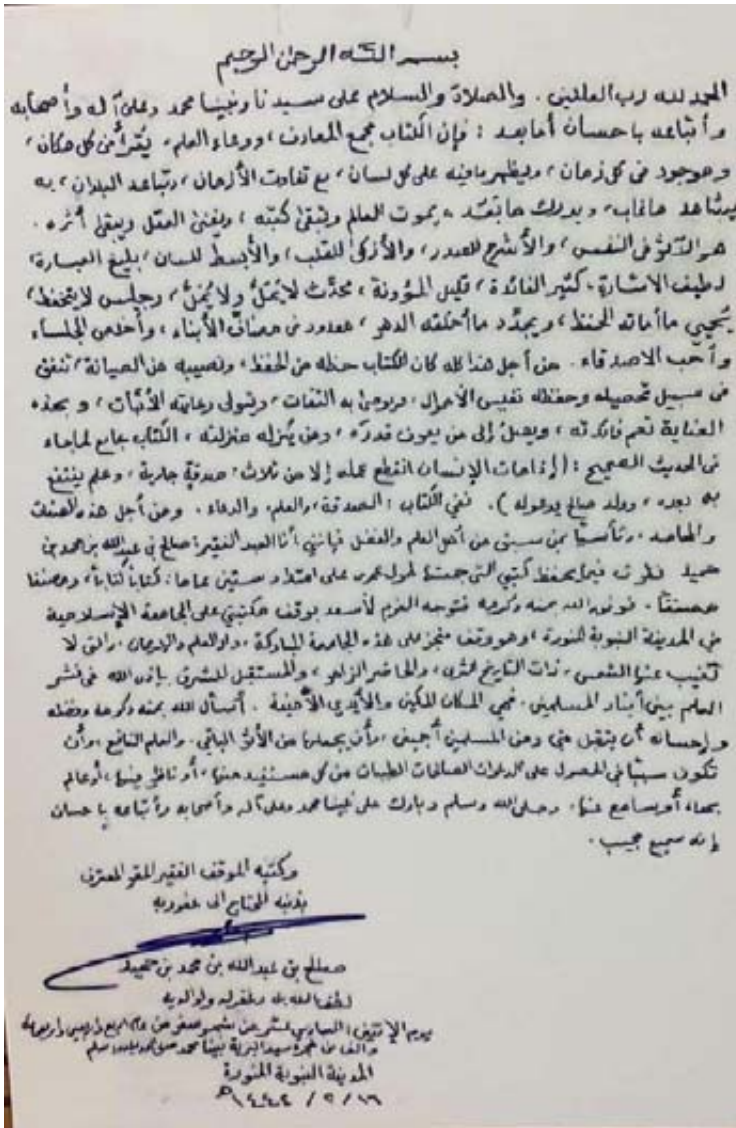 بسم الله الرحمن الرحيم
الحمد لله رب العالمين . والصلاة والسلام على سيدنا ونبينا محمد وعلى آله وأصحابه
وأتباعه بإحسان أما بعد : فإن الكتاب مجمع المعارف، ووعاء العلم، يُقرأ من كل مكان ،
وموجود في كل زمان ، ويظهر ما فيه على كل لسان ، مع تفاوت الأزمان ، وتباعد البلدان ، به
يشاهد ما غاب ، ويدرك ما بَعُد ، يموت العالم وتبقى كتبه ، ويفنى العقل ويبقى أثره .
هو في النفس ، والأشرح للصدر ، والأزكى للقلب ، والأبسط للسان ، بليغ العبارة ،
لطيف الاشارة ، كثير الفائدة ، قليل المؤونة ، محدّث لا يَمَلُّ ولا يُمَلُّ ، وجليس لا يتحفظ ،
يُحيي ما أماته الحفظ ، ويجدّد ما أخلقه الدهر ، معدود من الأبناء ، وأخلص الجلساء
وأحب الاصدقاء . من أجل هذا كله كان للكتاب حظه من الحفظ ، ونصيبه من الصيانة ، تنفق
في سبيل تحصيله وحفظه نفيس الأموال ، ويوصى به الثقات ، ويتولى رعايته الأثبات ، وبهذه
العناية تعم فائدته ، ويصل إلى من يعرف قدره ، ومن يُنزله منزلته ، الكتاب جامع لما جاء
في الحديث الصحيح : (إذا مات الإنسان انقطع عمله إلا من ثلاث : صدقةٍ جارية ، وعلم ينتفع
به بعده ، وولد صالح يدعو له ) . ففي الكتاب : الصدقة ، والعلم ، والدعاء . ومن أجل هذه الصفات
والمقاصد ، وتأسيًا بمن سبق من أهل العلم والفضل فإنني أنا العبد الفقير : صالح بن عبد الله بن محمد بن
حميد نظرت فيما يحفظ كتبي التي جمعتها طول عمري على امتداد ستين عاما : كتابًا كتابًا ، ومصنفا
مصنفًا . فوفق الله بمنه وكرمه فتوجه العزم لأسعد بوقف مكتبتي على الجامعة الإسلامية
في المدينة النبوية المنورة ، وهو وقف منجز على هذه الجامعة المباركة ، دار العلم والإيمان ، والتي لا
تغيب عنها الشمس ، ذات التاريخ الثري ، والحاضر الزاهر ، والمستقبل المشرق بإذن الله في نشر
العلم بين أبناء المسلمين ، فهي المكان المكين والأيدي الأمينة . أسأل الله بمنه وكرمه وفضله
وإحسانه أن يتقبل مني ومن المسلمين أجمعين ، وأن يجعلها من الأثر الباقي ، والعلم النافع ، وأن
تكون سببًا في الحصول على الدعوات الصالحات الطيبات من كل مستفيد منها ، أو ناظر فيها ، أو عالم
بها ، أو سامع عنها . وصلى الله وسلم وبارك على نبينا محمد وعلى آله وأصحابه وأتباعه بإحسان
إنه سميع مجيب .
وكتبه الموقف الفقير المقر المعترف
بذنبه المحتاج الى عفو ربه
صالح بن عبدالله بن محمد بن حميد
لطف الله به وغفر له ولوالديه
يوم الإثنين : السادس عشر من شهر صفر من عام أربع وأربعين وأربعمائة
وألف من هجرة سيد البرية نبينا محمد وسلم
المدينة النبوية المنورة